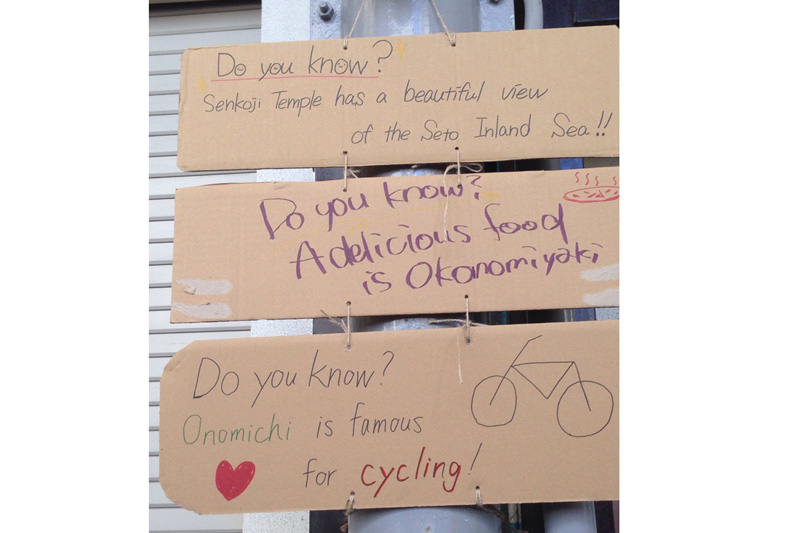 Do you know?
Senkoji Temple has a beautiful view
of the Seto Inland Sea!!
Do you know?
A delicious food
is Okonomiyaki
Do you know?
Onomichi is famous
for cycling!